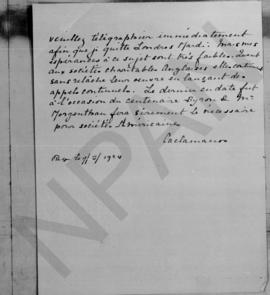 veuillez télégraphier immédiatement
afin que je quitte Londres Mardi. Mais mes
espérances à ce sujet sont très faibles. Quant
aux sociétés charitables Anglaises elles continuent
sans relâche leur oeuvre en lançant des
appels continuels. Le dernier en date fut
à l'occasion du centenaire Byron & Mr
Morgenthau fera sûrement le nécessaire
pour sociétés Américaines
Caclamanos
1924